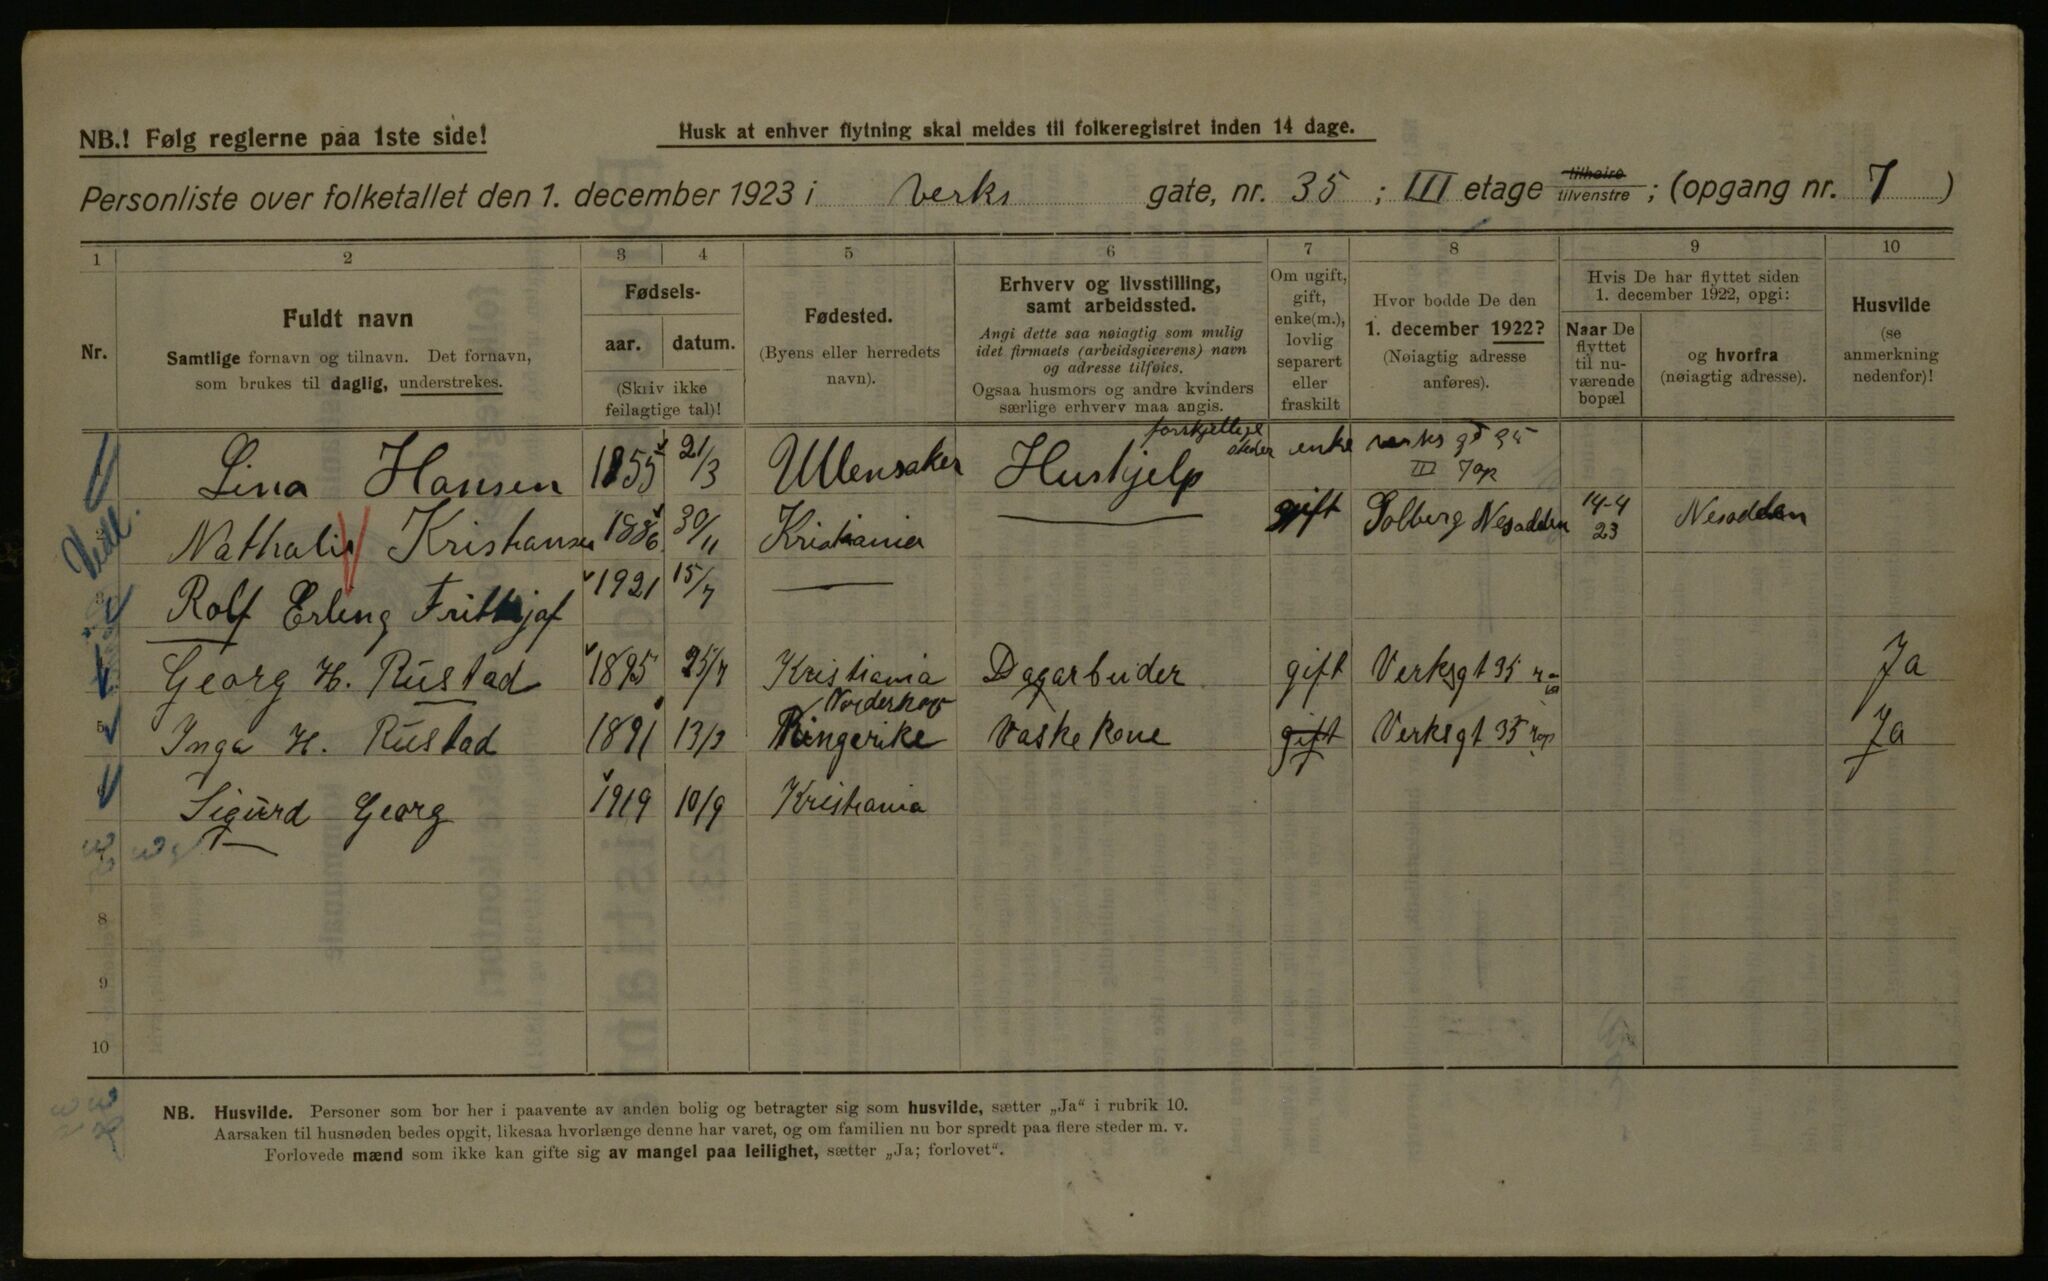 NB.! Følg reglerne paa 1ste side!
Husk at enhver flytning skal meldes til folkeregistret inden 14 dage.
Personliste over folketallet den 1. december 1923 i Verks gate, nr. 35 ; III etage tilhøire tilvenstre ; (opgang nr. 7 )
1 2 3 4 5 6 7 8 9 10
Nr.
Fuldt navn
Samtlige fornavn og tilnavn. Det fornavn,
som brukes til daglig, understrekes.
Fødsels-
aar. datum.
(Skriv ikke
feilagtige tal)!
Fødested.
(Byens eller herredets
navn).
Erhverv og livsstilling,
samt arbeidssted.
Angi dette saa nøiagtig som mulig
idet firmaets (arbeidsgiverens) navn
og adresse tilføies.
Ogsaa husmors og andre kvinders
særlige erhverv maa angis.
Om ugift,
gift,
enke(m.),
lovlig
separert
eller
fraskilt
Hvor bodde De den
1. december 1922?
(Nøiagtig adresse
anføres).
Hvis De har flyttet siden
1. december 1922, opgi:
Naar De
flyttet
til nu-
værende
bopæl
og hvorfra
(nøiagtig adresse).
Husvilde
(se
anmerkning
nedenfor)!
Lina Hansen 1855 21/3 Ullensaker Hushjelp forskjellige steder enke verks gt 35
III 7 op
Nathalie Kristiansen 1886 30/11 Kristiania gift Solberg Nesodden 14-4 23 Nesodden
Rolf Erling Frithjof 1921 15/7
Georg H. Rustad 1895 25/7 Kristiania Dagarbeider gift Verksgt 35 Ja
Inga H. Rustad 1891 13/3 Norderhov Ringerike Vaskekone gift Verksgt 35 7 op Ja
Sigurd Georg 1919 10/9 Kristiania
8
9
10
NB. Husvilde. Personer som bor her i paavente av anden bolig og betragter sig som husvilde, sætter „Ja“ i rubrik 10.
Aarsaken til husnøden bedes opgit, likesaa hvorlænge denne har varet, og om familien nu bor spredt paa flere steder m. v.
Forlovede mænd som ikke kan gifte sig av mangel paa leilighet, sætter „Ja; forlovet“.